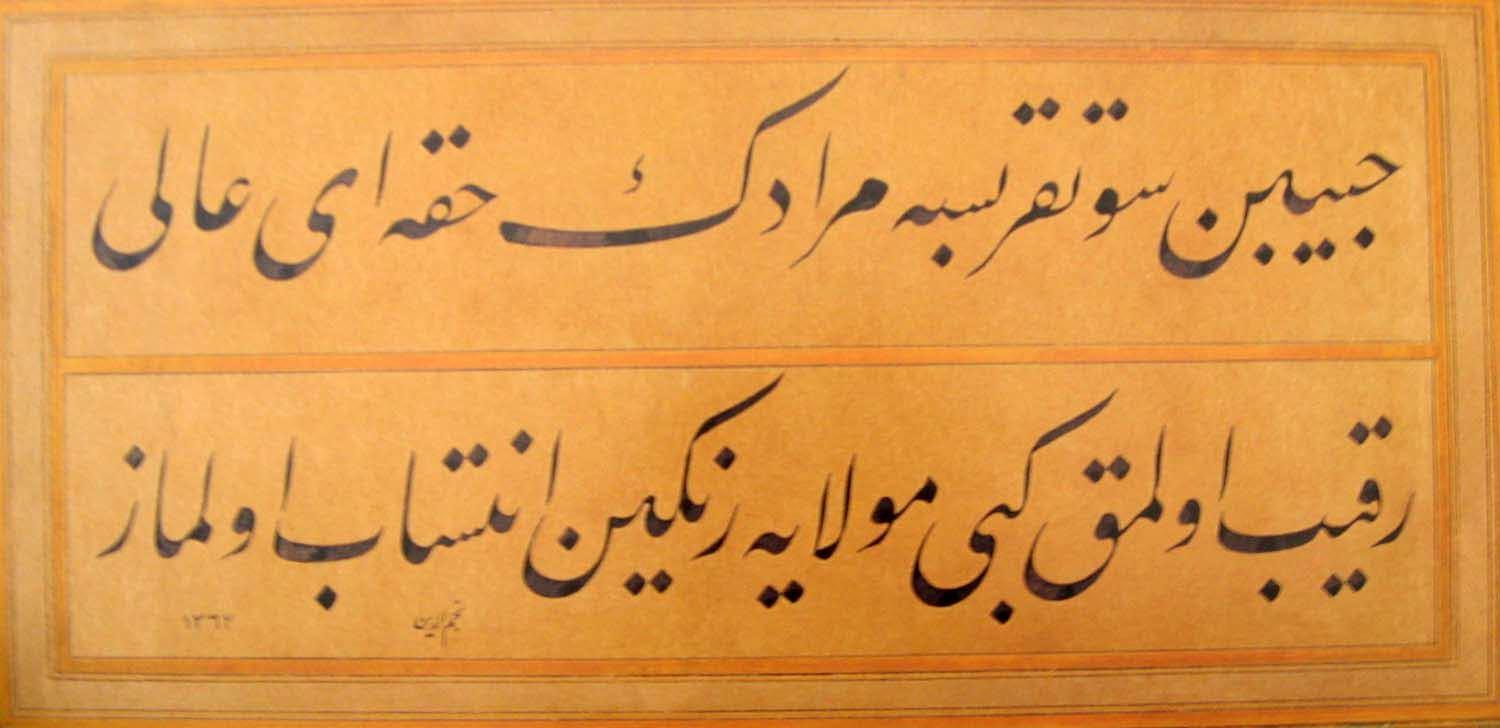 حبیبن سو تقربسه مرادك حقه ای عالی
رقیب اولمق کبی مولایه رنکین انتساب اولماز
نجم الدین ١٣٦٢